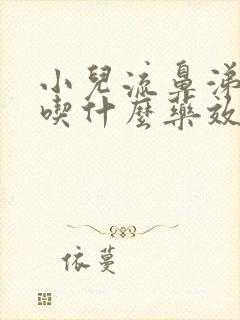 小兒流鼻涕
喫什麼藥效
依蔓